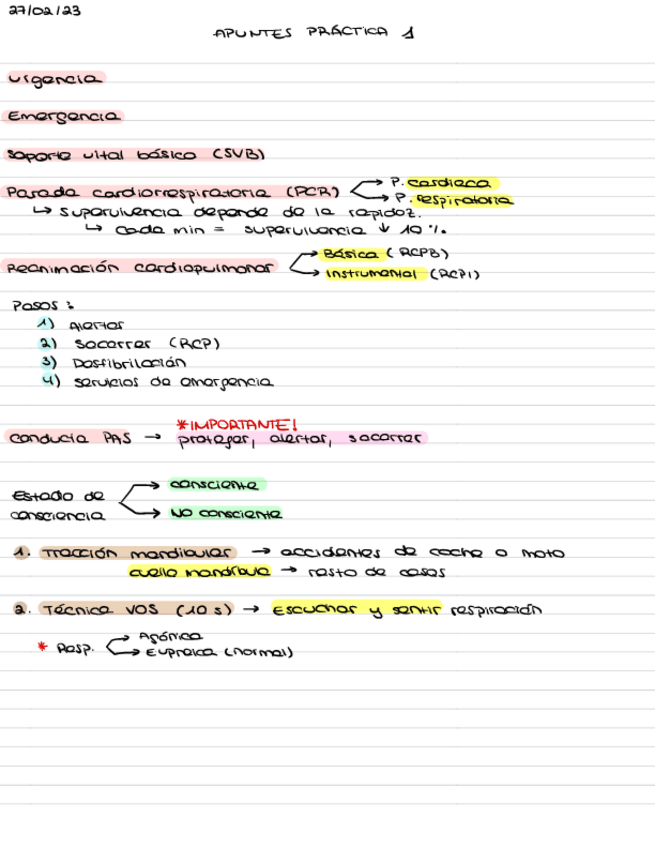 27/02/23
APUNTES PRÁCTICA 1
urgencia
Emergencia
soporte vital básico (SVB)
Parada cardiorrespiratoria (PCR) → P. cardiaca
→ P. respiratoria
↳ supervivencia depende de la rapidez.
↳ cada min = supervivencia ↓ 10 %.
Reanimación cardiopulmonar → Básica (RCPB)
→ instrumental (RCPI)
Pasos :
1) Alertar
2) Socorrer (RCP)
3) Desfibrilación
4) servicios de emergencia
*IMPORTANTE!
conducta PAS → proteger, alertar, socorrer
Estado de consciencia → consciente
→ NO consciente
1. Tracción mandibular → accidentes de coche o moto
cuello mandíbula → resto de casos
2. Técnica VOS (10 s) → Escuchar y sentir respiración
* Resp. → Agónica
→ Eupneica (normal)